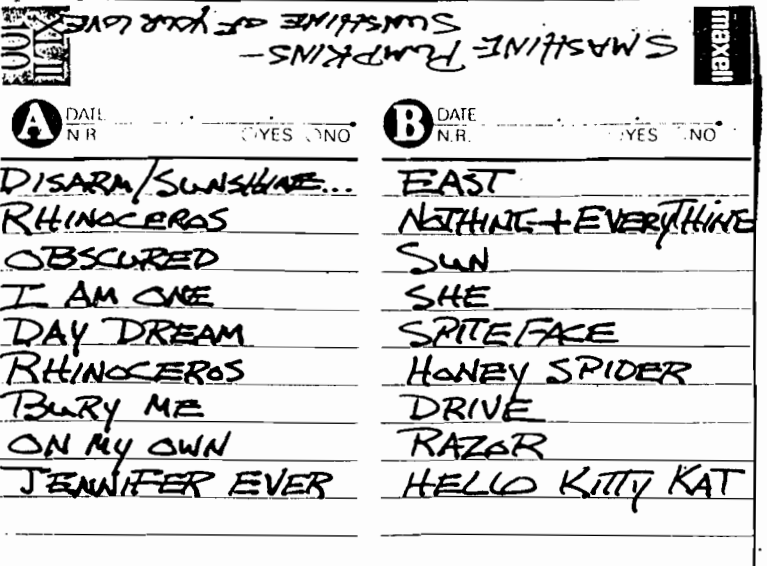 maxell
XLII
100
SMASHING PUMPKINS-
SUNSHINE OF YOUR LOVE
A DATE
N.R. YES NO
DISARM/SUNSHINE...
RHINOCEROS
OBSCURED
I AM ONE
DAY DREAM
RHINOCEROS
BURY ME
ON MY OWN
JENNIFER EVER
B DATE
N.R. YES NO
EAST
NOTHING + EVERYTHING
SUN
SHE
SPITEFACE
HONEY SPIDER
DRIVE
RAZOR
HELLO KITTY KAT